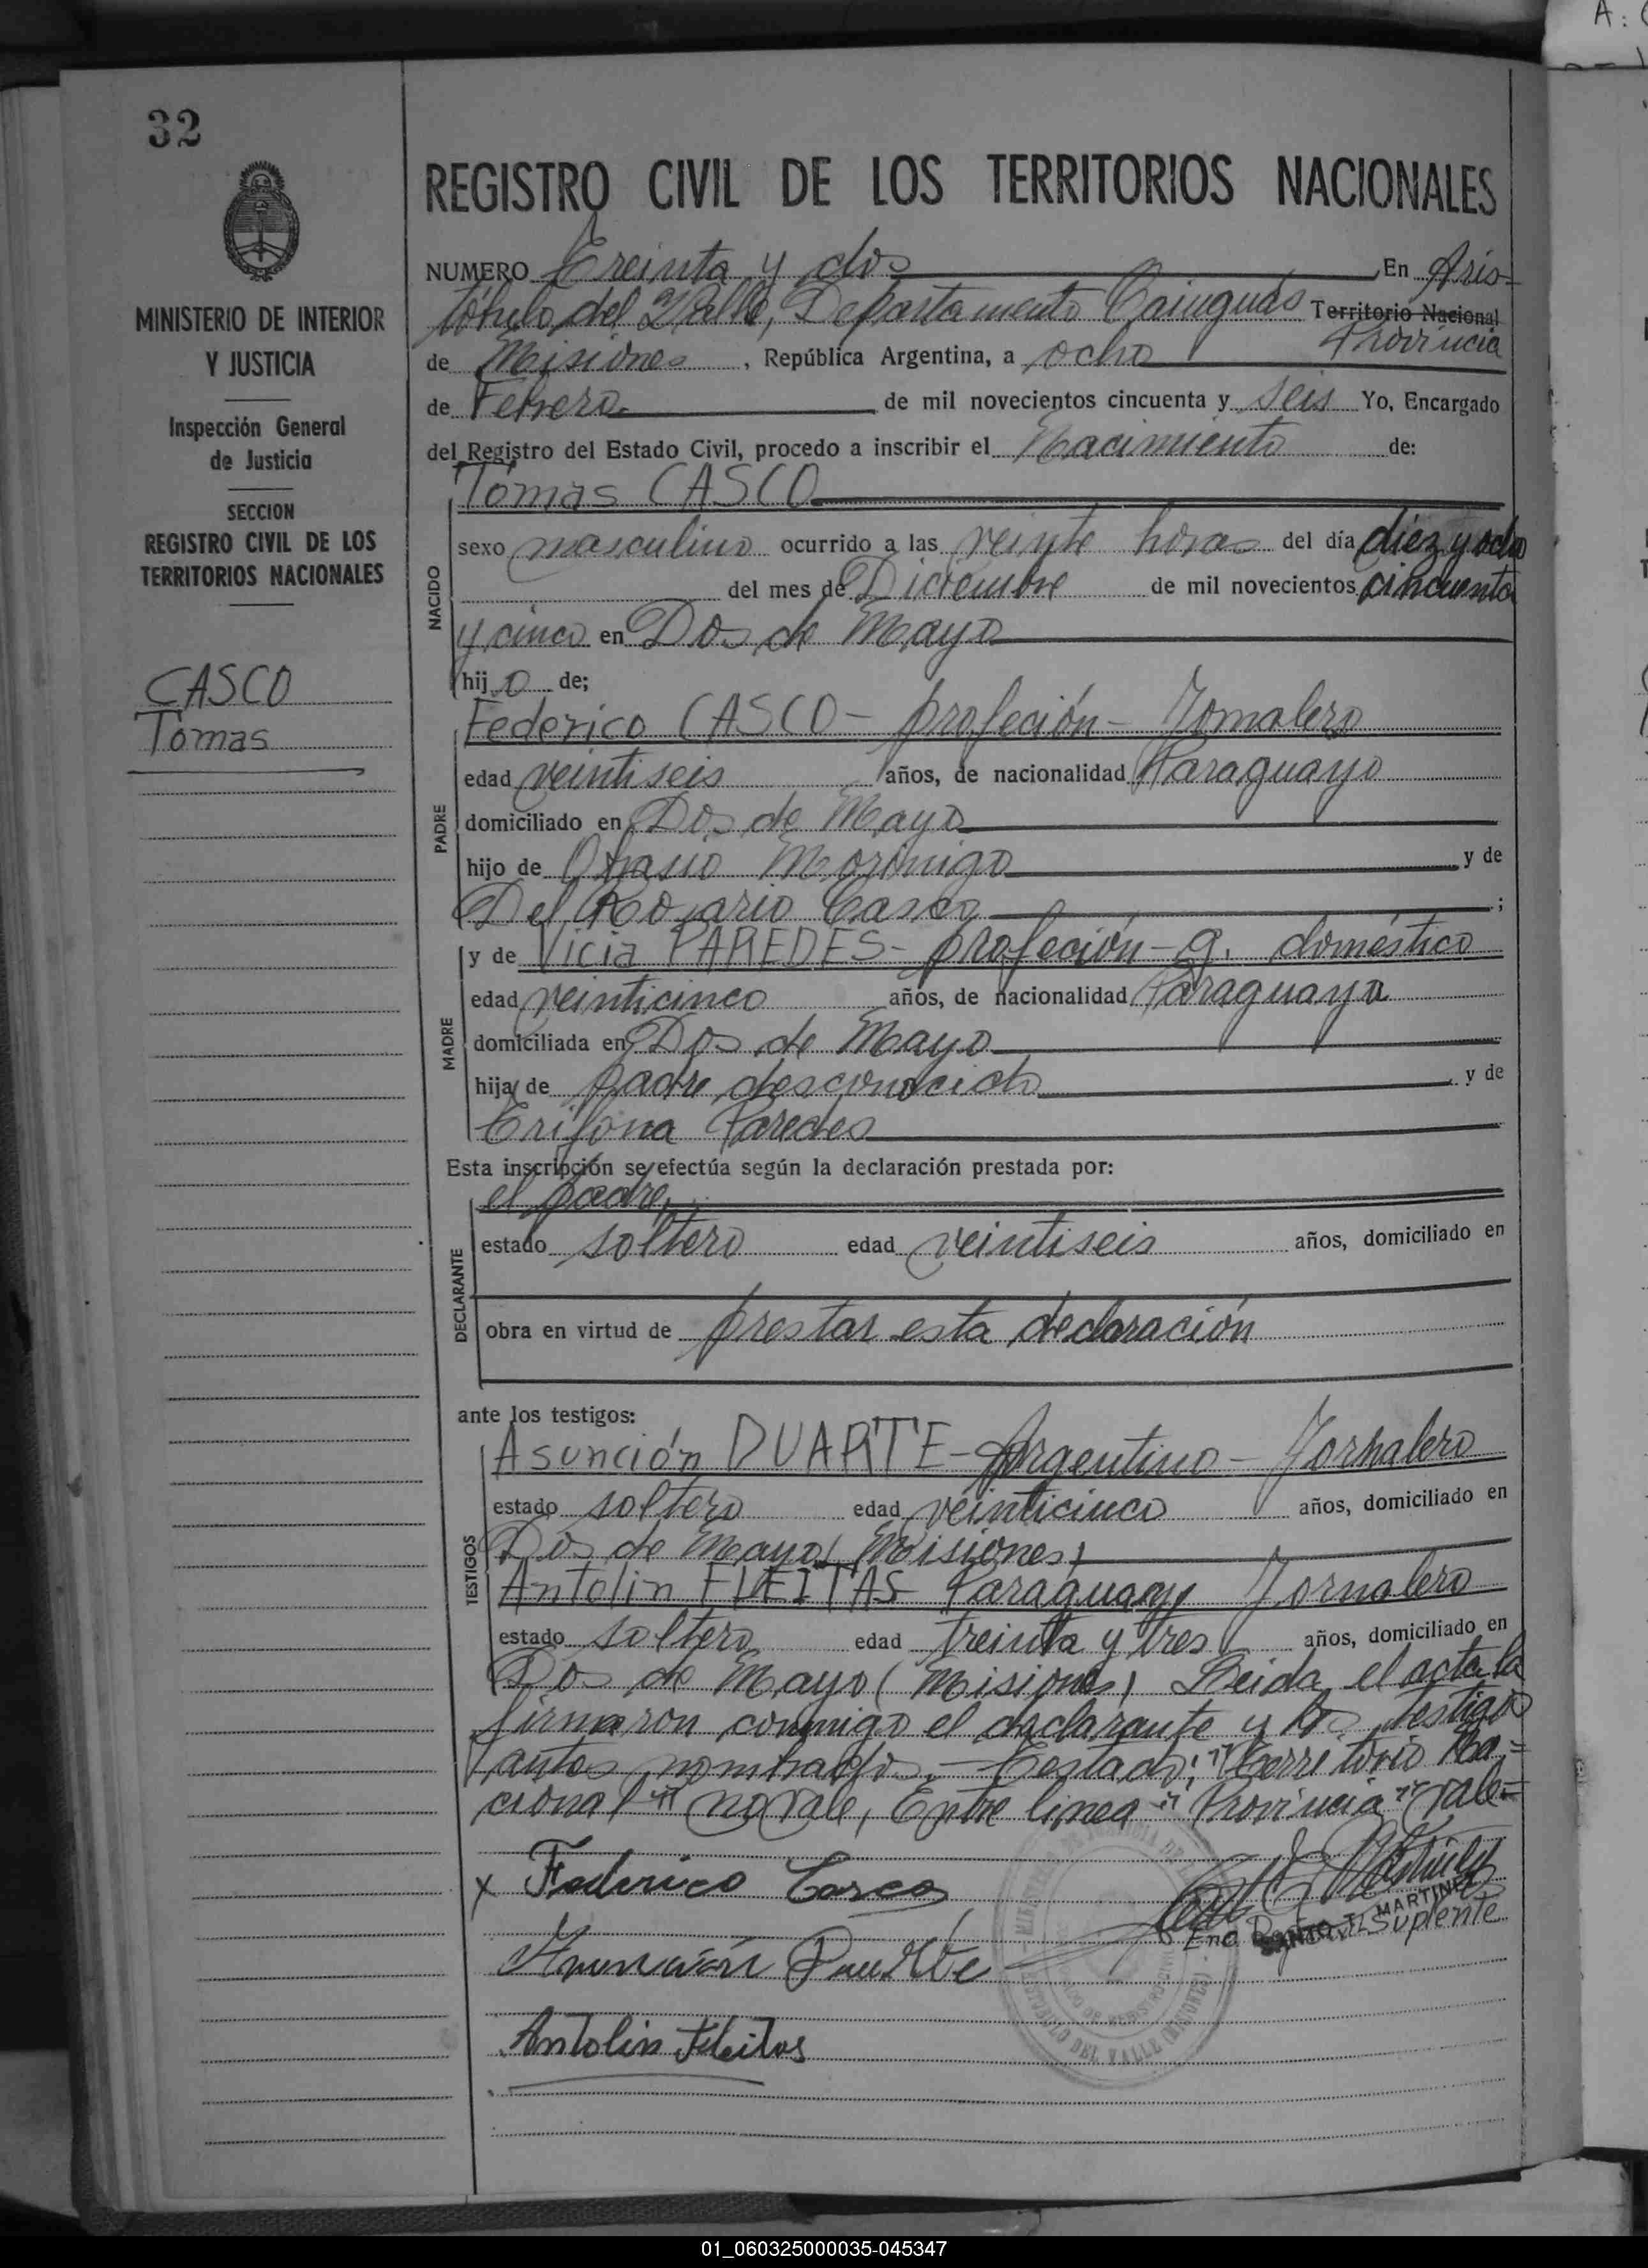 32
MINISTERIO DE INTERIOR
Y JUSTICIA
Inspección General
de Justicia
SECCION
REGISTRO CIVIL DE LOS
TERRITORIOS NACIONALES
CASCO
Tomas
REGISTRO CIVIL DE LOS TERRITORIOS NACIONALES
NUMERO Treinta y dos En Aris-
tóbulo del Valle, Departamento Cainguás Territorio Nacional
Provincia
de Misiones, República Argentina, a ocho
de Febrero de mil novecientos cincuenta y seis Yo, Encargado
del Registro del Estado Civil, procedo a inscribir el Nacimiento de:
Tomas CASCO
NACIDO
sexo masculino ocurrido a las veinte horas del día diez y ocho
del mes de Diciembre de mil novecientos cincuenta
y cinco en Dos de Mayo
hijo de;
PADRE
Federico CASCO - profeción - Jornalero
edad veintiseis años, de nacionalidad Paraguayo
domiciliado en Dos de Mayo
hijo de Morinigo y de
Del Rosario Casco ;
MADRE
y de Vicia PAREDES - profeción - q. doméstico
edad veinticinco años, de nacionalidad Paraguaya
domiciliada en Dos de Mayo
hija de padre desconocido y de
Trifona Paredes
Esta inscripción se efectúa según la declaración prestada por:
DECLARANTE
el padre,
estado soltero edad veintiseis años, domiciliado en
obra en virtud de prestar esta declaración
ante los testigos:
TESTIGOS
Asunción DUARTE - Argentino - Jornalero
estado soltero edad veinticinco años, domiciliado en
Dos de Mayo (Misiones)
Antolin FLEITAS Paraguayo Jornalero
estado soltero edad treinta y tres años, domiciliado en
Dos de Mayo (Misiones) Leida el acta la
firmaron conmigo el declarante y los testigos
antes nombrados. - Testado: "Territorio Na-
cional" no vale, Entre linea "Provincia" vale-
x Federico Casco
MARTINEZ
Enc Suplente
Asunción Duarte
Antolin Fleitas
DEL VALLE (MISIONES)
01_060325000035-045347